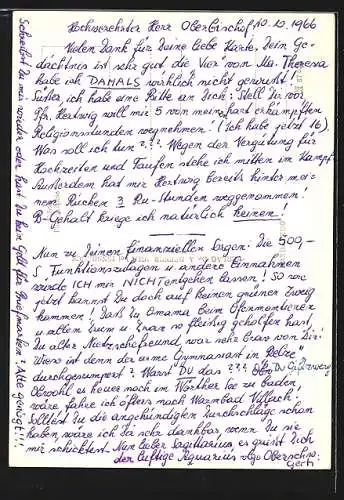 Hochverehrter Herr Oberbischof! 10.12.1966
Vielen Dank für Deine liebe Karte, Dein Ge-
dächtnis ist sehr gut, die Vier vom Ma. Theresia
habe ich DAMALS wirklich nicht gewusst!
Süßer, ich habe eine Bitte an Dich: Stell Dir vor
Pfr. Hertwig will mir 5 von meinen hart erkämpften
Religionsstunden wegnehmen. (Ich habe jetzt 16).
Was soll ich tun??? Wegen der Vergütung für
Hochzeiten und Taufen stehe ich mitten im Kampf
Ausserdem hat mir Hertwig bereits hinter mei-
nem Rücken 2 Stunden weggenommen!
B-Gehalt kriege ich natürlich keinen!
Nun zu Deinen finanziellen Sorgen: Die 500,-
S Funktionszulagen u andere Einnahmen
würde ICH mir NICHT entgehen lassen! So
jetzt kannst Du doch auf keinen grünen Zweig
kommen! Daß Du Omama beim
u allem geholfen hast,
Du alter war sehr brav von Dir!
Wieso ist denn der arme Gymnasiast in
durchgesumpert? Warst DU das??? oh Du Giftzwerg
Obwohl es heuer noch im Wörther See zu baden,
wäre fahre ich öfters nach Warmbad Villach!
Solltest Du die angekündigten Durchschläge schon
haben, wäre ich Dir sehr dankbar, wenn Du sie
mir schicktest. Nun lieber Sagittarius, es grüßt Dich
der luftige Aquarius Oberschw.
Gerti
Schreibst Du mir wieder oder hast Du kein Geld für Briefmarken? Alte genügt!!!